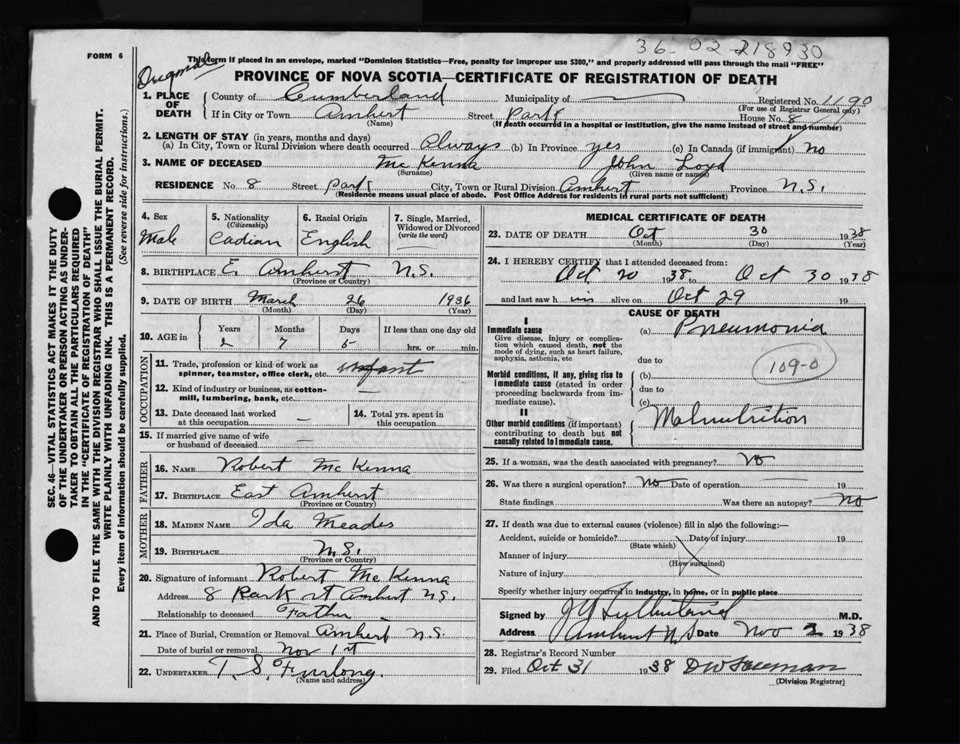 36-02-218930
FORM 6
Original
This form if placed in an envelope, marked "Dominion Statistics—Free, penalty for improper use $300," and properly addressed will pass through the mail "FREE"
PROVINCE OF NOVA SCOTIA—CERTIFICATE OF REGISTRATION OF DEATH
1. PLACE OF DEATH
County of Cumberland Municipality of Registered No. 1190
(For use of Registrar General only)
If in City or Town Amherst Street Park House No. 8
(Name) (If death occurred in a hospital or institution, give the name instead of street and number)
2. LENGTH OF STAY (in years, months and days)
(a) In City, Town or Rural Division where death occurred Always (b) In Province yes (c) In Canada (if immigrant) no
3. NAME OF DECEASED McKenna John Loyd
(Surname) (Given name or names)
RESIDENCE No. 8 Street Park City, Town or Rural Division Amherst Province N.S.
(Residence means usual place of abode. Post Office Address for residents in rural parts not sufficient)
4. Sex
Male
5. Nationality
(Citizenship)
Cadian
6. Racial Origin
English
7. Single, Married, Widowed or Divorced
(write the word)
8. BIRTHPLACE E. Amherst N.S.
(Province or Country)
9. DATE OF BIRTH March 26 1936
(Month) (Day) (Year)
10. AGE in Years Months Days If less than one day old
2 7 5 hrs. or min.
OCCUPATION
11. Trade, profession or kind of work as spinner, teamster, office clerk, etc. infant
12. Kind of industry or business, as cotton-mill, lumbering, bank, etc. —
13. Date deceased last worked at this occupation —
14. Total yrs. spent in this occupation
15. If married give name of wife or husband of deceased —
FATHER
16. NAME Robert McKenna
17. BIRTHPLACE East Amherst
(Province or Country)
MOTHER
18. MAIDEN NAME Ida Meades
19. BIRTHPLACE N.S.
(Province or Country)
20. Signature of informant Robert McKenna
Address 8 Park st Amherst N.S.
Relationship to deceased Father
21. Place of Burial, Cremation or Removal Amherst N.S.
Date of burial or removal Nov 1st
22. UNDERTAKER T. S. Furlong
(Name and address)
MEDICAL CERTIFICATE OF DEATH
23. DATE OF DEATH Oct 30 1938
(Month) (Day) (Year)
24. I HEREBY CERTIFY that I attended deceased from:
Oct 20 1938 Oct 30 1938
and last saw him alive on Oct 29 19
CAUSE OF DEATH
I
Immediate cause
Give disease, injury or complication which caused death, not the mode of dying, such as heart failure, asphyxia, asthenia, etc.
(a) Pneumonia
due to
Morbid conditions, if any, giving rise to immediate cause (stated in order proceeding backwards from immediate cause).
(b)
due to
(c)
109-0
II
Other morbid conditions (if important) contributing to death but not causally related to immediate cause.
Malnutrition
25. If a woman, was the death associated with pregnancy? No
26. Was there a surgical operation? No Date of operation 19
State findings Was there an autopsy? No
27. If death was due to external causes (violence) fill in also the following:—
Accident, suicide or homicide? Date of injury 19
(State which)
Manner of injury
(How sustained)
Nature of injury
Specify whether injury occurred in industry, in home, or in public place
Signed by J A Sutherland M.D.
Address Amherst N.S Date Nov 2 1938
28. Registrar's Record Number
29. Filed Oct 31 1938
(Division Registrar)
SEC. 46—VITAL STATISTICS ACT MAKES IT THE DUTY
OF THE UNDERTAKER OR PERSON ACTING AS UNDERTAKER TO OBTAIN ALL THE PARTICULARS REQUIRED
IN THE "CERTIFICATE OF REGISTRATION OF DEATH"
AND TO FILE THE SAME WITH THE DIVISION REGISTRAR WHO SHALL ISSUE THE BURIAL PERMIT.
WRITE PLAINLY WITH UNFADING INK. THIS IS A PERMANENT RECORD.
Every item of information should be carefully supplied. (See reverse side for instructions.)